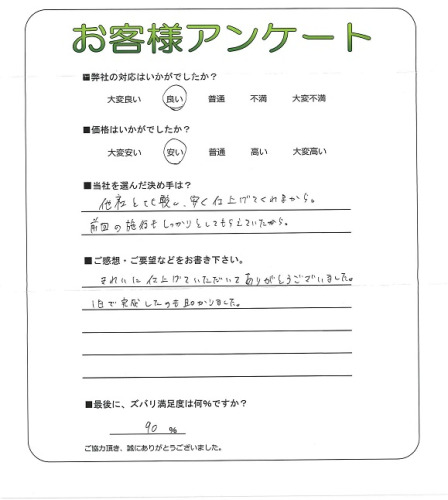 お客様アンケート
■弊社の対応はいかがでしたか?
大変良い 良い 普通 不満 大変不満
■価格はいかがでしたか?
大変安い 安い 普通 高い 大変高い
■当社を選んだ決め手は?
他社とても親し、安く仕上げてくれるから。
前回の施行もしっかりとしてもらえていたから。
■ご感想・ご要望などをお書き下さい。
きれいに仕上げていただいてありがとうございました。
1日で完成したのも助かりました。
■最後に、ズバリ満足度は何%ですか?
90 %
ご協力頂き、誠にありがとうございました。